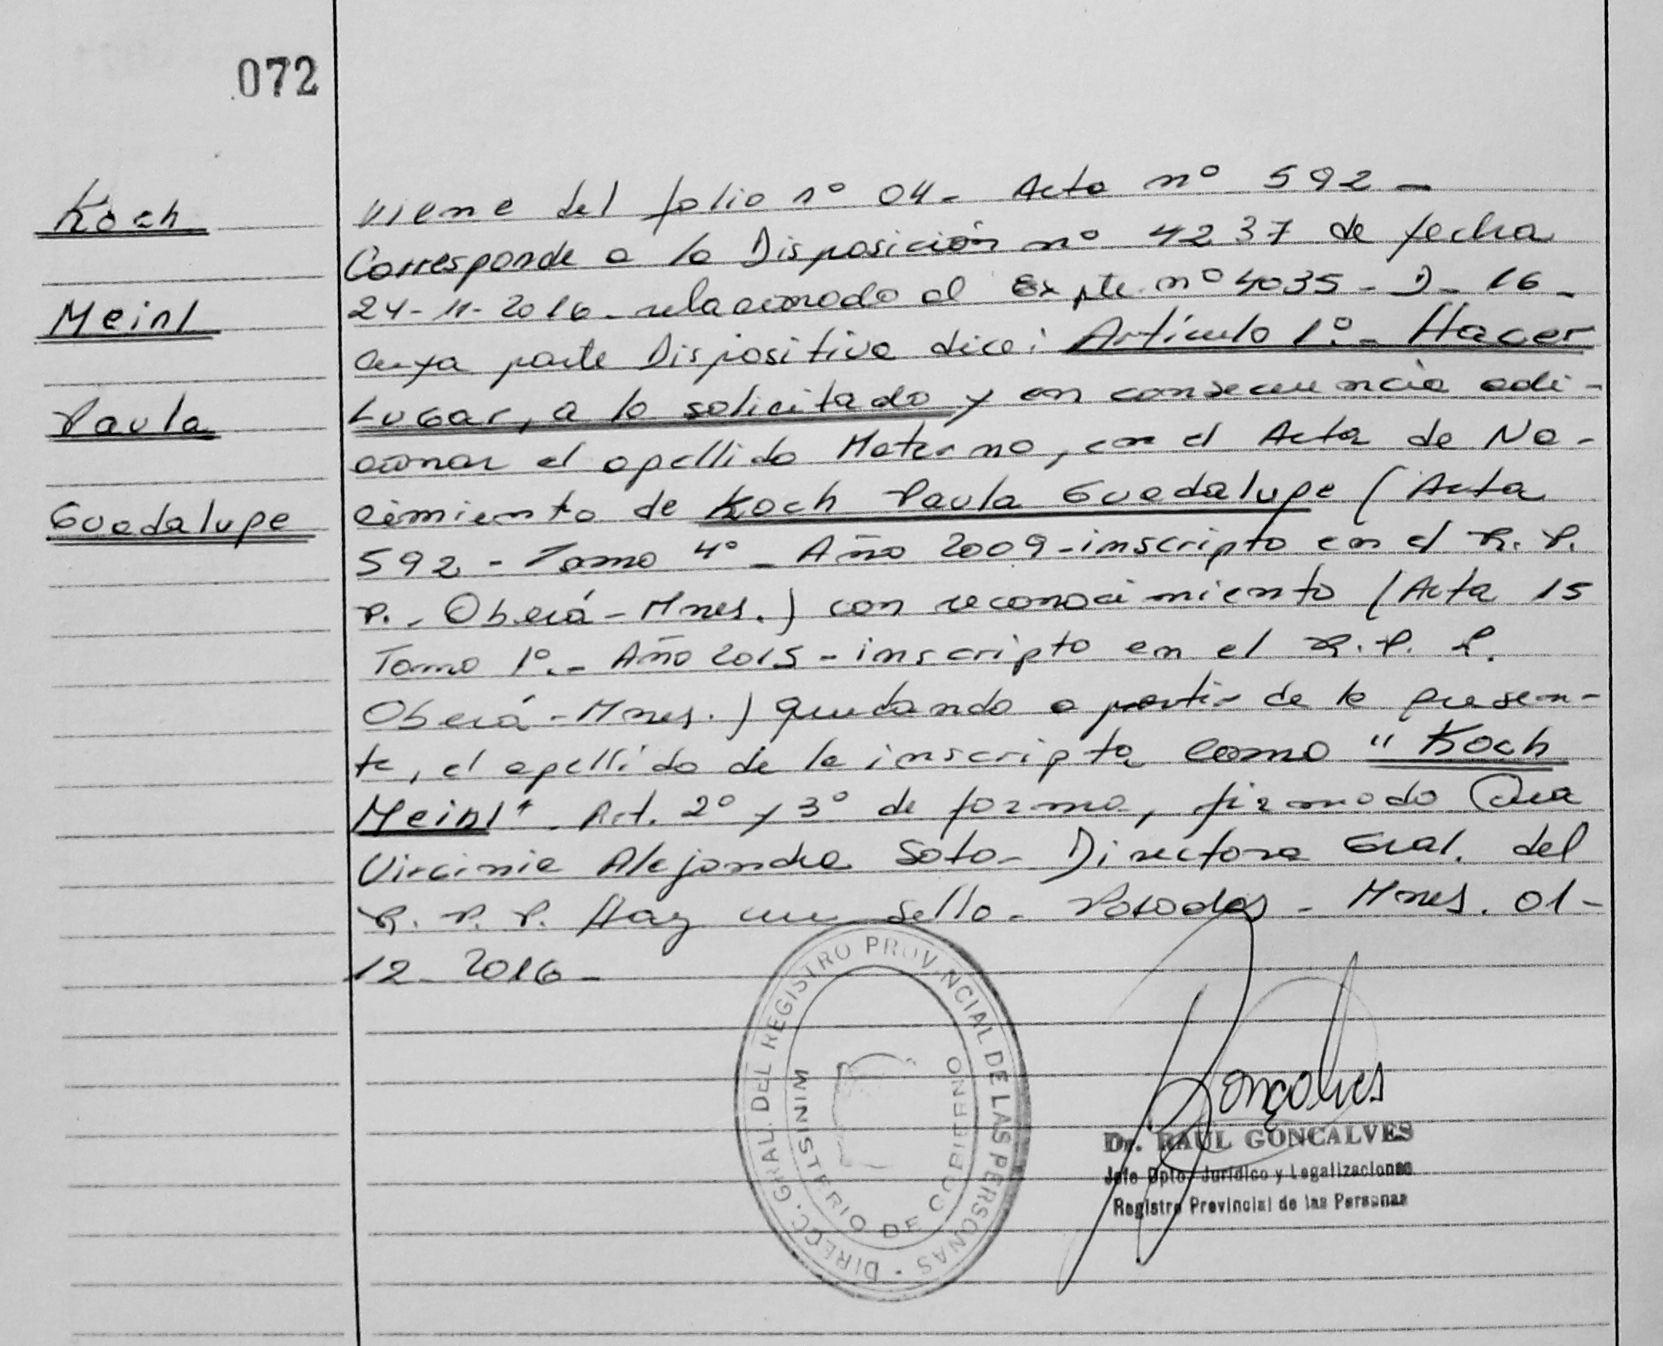 072
Koch
Meinl
Paula
Guadalupe
Viene del folio nº 04 - Acta nº 592 -
Corresponde a la Disposición nº 4237 de fecha
24-11-2016 - relacionado al Expte. nº 4035 - D - 16 -
cuya parte Dispositiva dice: Artículo 1º.- Hacer
Lugar, a lo solicitado y en consecuencia adi-
cionar el apellido Materno, en el Acta de Na-
cimiento de Koch Paula Guadalupe (Acta
592 - Tomo 4º - Año 2009 - inscripto en el R. P.
P. - Oberá - Mnes.) con reconocimiento (Acta 15
Tomo 1º.- Año 2015 - inscripto en el R. P. P.
Oberá - Mnes.) quedando a partir de la presen-
te, el apellido de la inscripta como "Koch
Meinl". Art. 2º y 3º de forma, firmado Dra
Virginia Alejandra Soto - Directora Gral. del
R. P. P. Hay un sello - Posadas - Mnes. 01-
12 - 2016 -
DIRECC. GRAL. DEL REGISTRO PROVINCIAL DE LAS PERSONAS -
MINISTERIO DE GOBIERNO
Gonçalves
Dr. RAUL GONCALVES
Jefe Dpto. Jurídico y Legalizaciones
Registro Provincial de las Personas